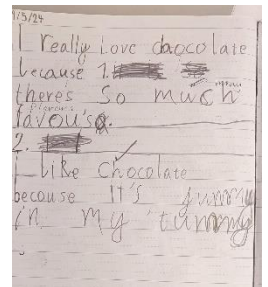 1/3/24
I really Love chocolate
because 1.
theres so much
flavou's.
2.
I Like Chocolate
because It's yummy
in my tummy